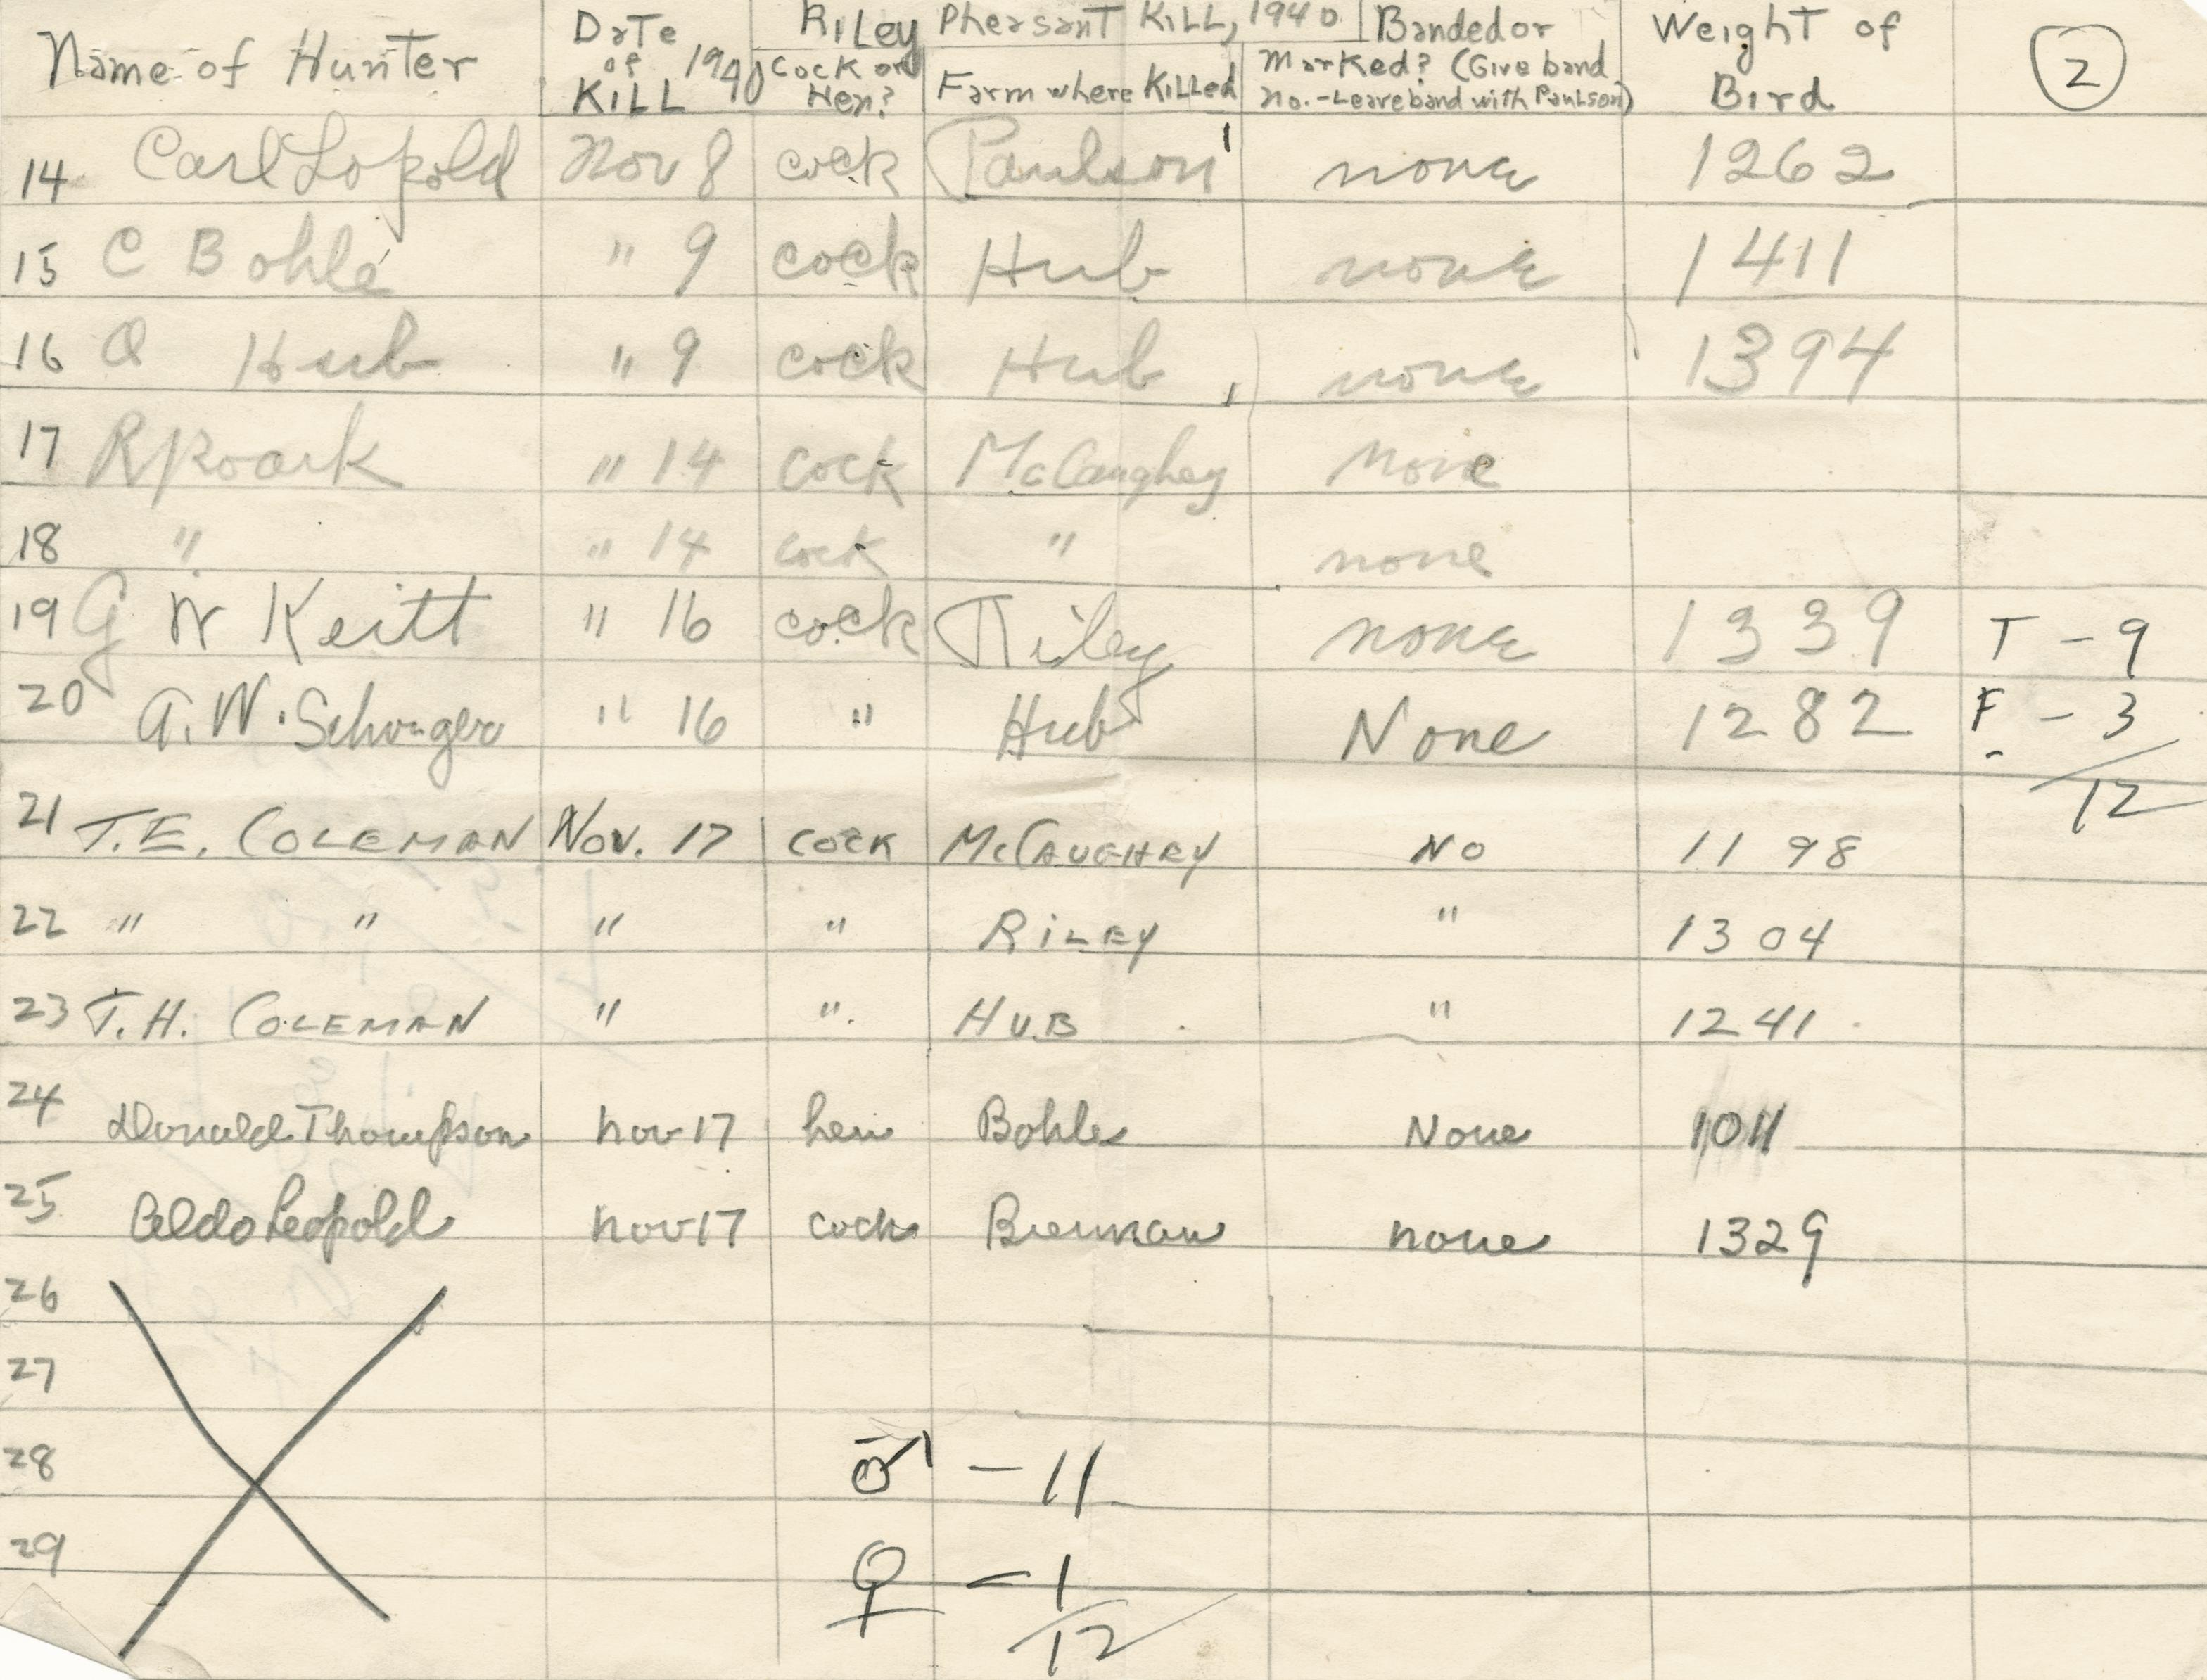 Riley Pheasant Kill, 1940
Name of Hunter Date of Kill 1940 Cock or Hen? Farm where Killed Banded or Marked? (Give band no.-Leave band with Paulson) Weight of Bird 2
14 Carl Lopold Nov 8 cock Paulson none 1262
15 C Bohle " 9 cock Hub none 1411
16 O Hub " 9 cock Hub none 1394
17 R Roark " 14 cock McCaughey none
18 " " 14 cock " none
19 G W Keitt " 16 cock Riley none 1339 T - 9
20 A. W. Schorger " 16 " Hub None 1282 F - 3
12
21 T.E. COLEMAN Nov. 17 cock McCAUGHEY NO 1198
22 " " " " RiLEY " 1304
23 T.H. COLEMAN " " HUB " 1241
24 Donald Thompson nov 17 hen Bohle None 1011
25 Aldo Leopold nov 17 cock Brennan none 1329
26
27
28 ♂ - 11
29 ♀ - 1
12